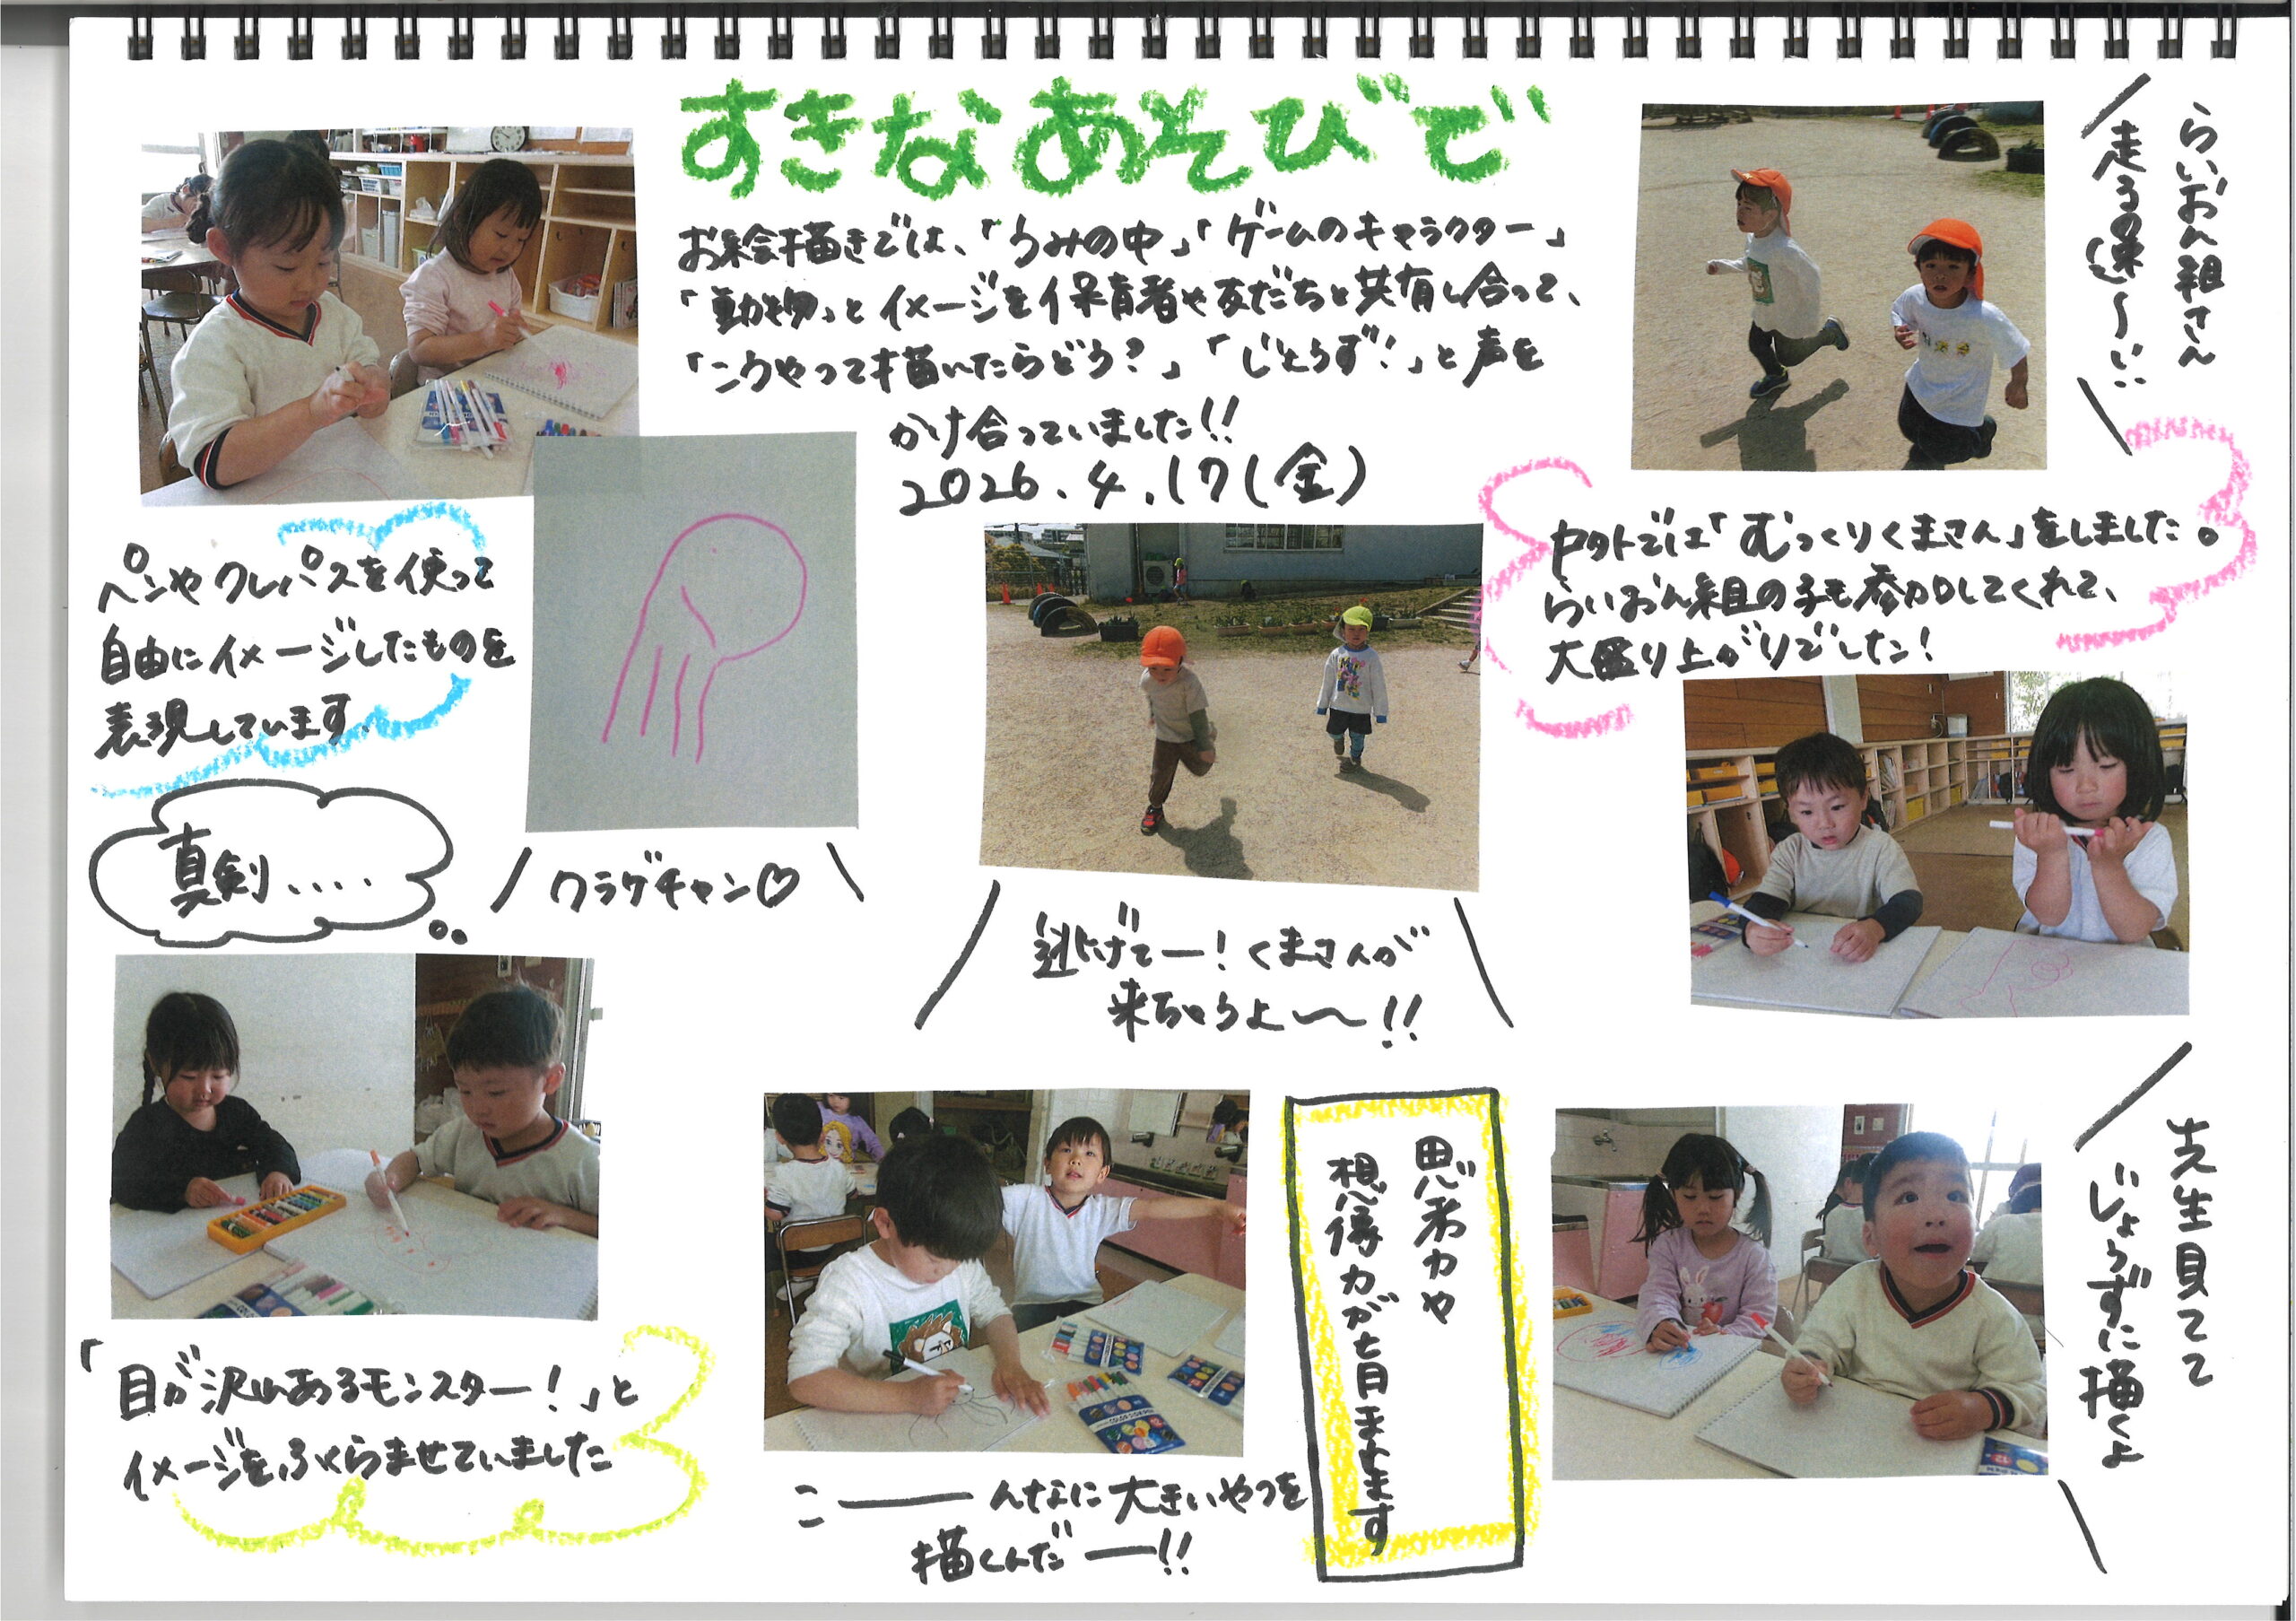 すきなあそびで
お絵描きでは、「うみの中」「ゲームのキャラクター」
「動物」とイメージを保育者や友だちと共有し合って、
「こうやって描いたらどう?」「じょうず!」と声を
かけ合っていました!!
2026.4.17(金)
らいおん組さん
走るの速〜い!
ペンやクレパスを使って
自由にイメージしたものを
表現しています。
クラゲチャン♡
真剣....
逃げてー!くまさんが
来ちゃうよ〜!!
外では「むっくりくまさん」をしました。
らいおん組の子も参加してくれて、
大盛り上がりでした!
「目が沢山あるモンスター!」と
イメージをふくらませていました
こーーんなに大きいやつを
描くんだー!!
思考力や
想像力が育まれます
先生見てて
じょうずに描くよ